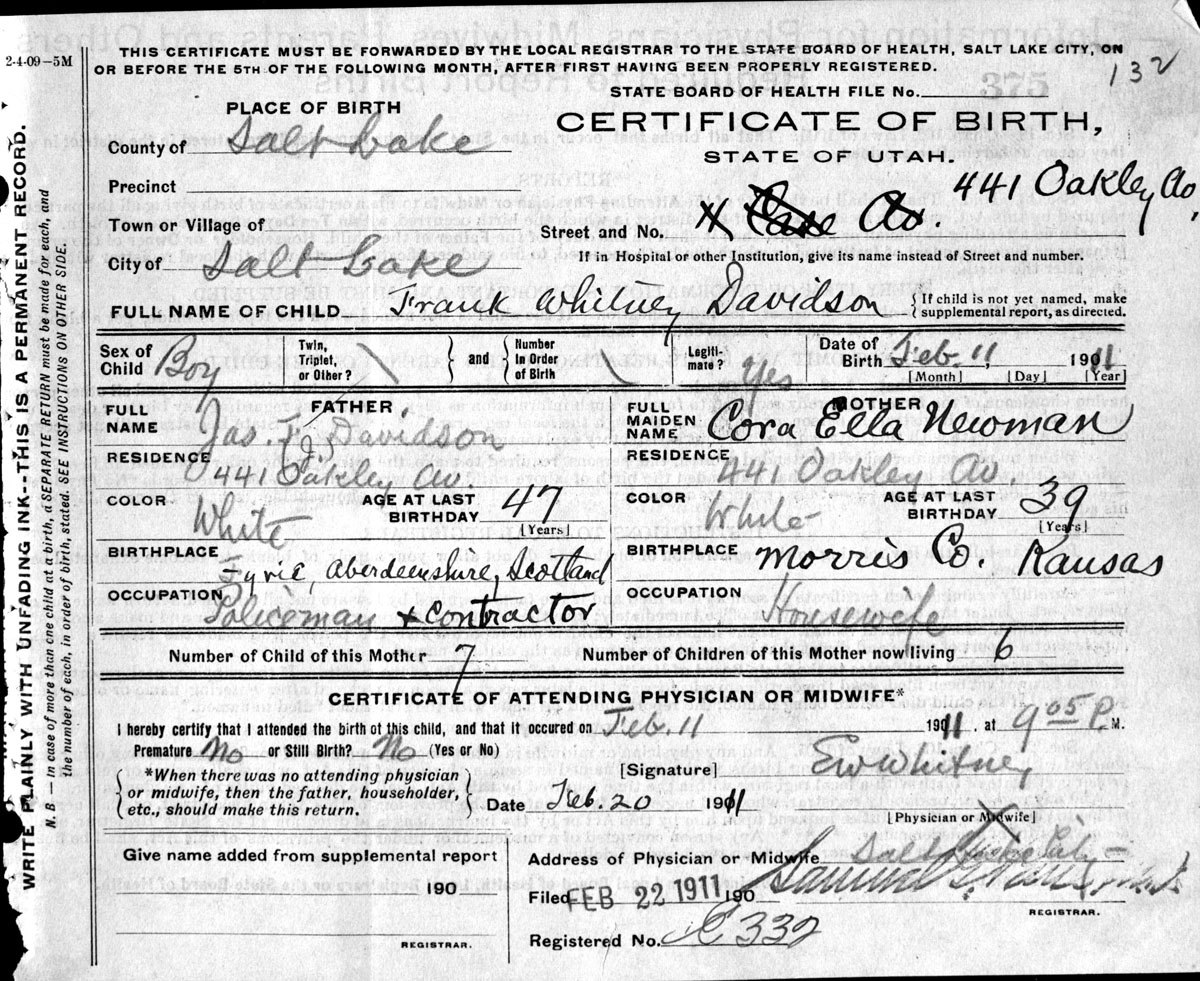 2-4-09-5M
THIS CERTIFICATE MUST BE FORWARDED BY THE LOCAL REGISTRAR TO THE STATE BOARD OF HEALTH, SALT LAKE CITY, ON
OR BEFORE THE 5TH OF THE FOLLOWING MONTH, AFTER FIRST HAVING BEEN PROPERLY REGISTERED.
132
STATE BOARD OF HEALTH FILE No.
375
PLACE OF BIRTH
CERTIFICATE OF BIRTH,
STATE OF UTAH.
County of Salt Lake
Precinct
441 Oakley Av,
Town or Village of
Street and No. Av.
City of Salt Lake
If in Hospital or other Institution, give its name instead of Street and number.
FULL NAME OF CHILD Frank Whitney Davidson { If child is not yet named, make
supplemental report, as directed.
Sex of Child Boy
Twin, Triplet, or Other? } and { Number in Order of Birth
Legitimate? Yes
Date of Birth Feb. 11, 1911
[Month] [Day] [Year]
FATHER.
FULL NAME Jas. F. Davidson
MOTHER
FULL MAIDEN NAME Cora Ella Newman
RESIDENCE 441 Oakley Av.
RESIDENCE 441 Oakley Av.
COLOR White
AGE AT LAST BIRTHDAY 47 [Years]
COLOR White
AGE AT LAST BIRTHDAY 39 [Years]
BIRTHPLACE Fyvie, Aberdeenshire, Scotland
BIRTHPLACE Morris Co. Kansas
OCCUPATION Policeman & Contractor
OCCUPATION Housewife
Number of Child of this Mother 7
Number of Children of this Mother now living 6
CERTIFICATE OF ATTENDING PHYSICIAN OR MIDWIFE*
I hereby certify that I attended the birth of this child, and that it occured on Feb. 11 1911. at 9 05 P. M.
Premature No or Still Birth? No (Yes or No)
{ *When there was no attending physician
or midwife, then the father, householder,
etc., should make this return. }
[Signature] EW Whitney
Date Feb. 20 1911
[Physician or Midwife]
Give name added from supplemental report
190
REGISTRAR.
Address of Physician or Midwife Salt Lake City
Filed FEB 22 1911 190
REGISTRAR.
Registered No. 332
WRITE PLAINLY WITH UNFADING INK--THIS IS A PERMANENT RECORD.
N. B.—In case of more than one child at a birth, a SEPARATE RETURN must be made for each, and
the number of each, in order of birth, stated. SEE INSTRUCTIONS ON OTHER SIDE.